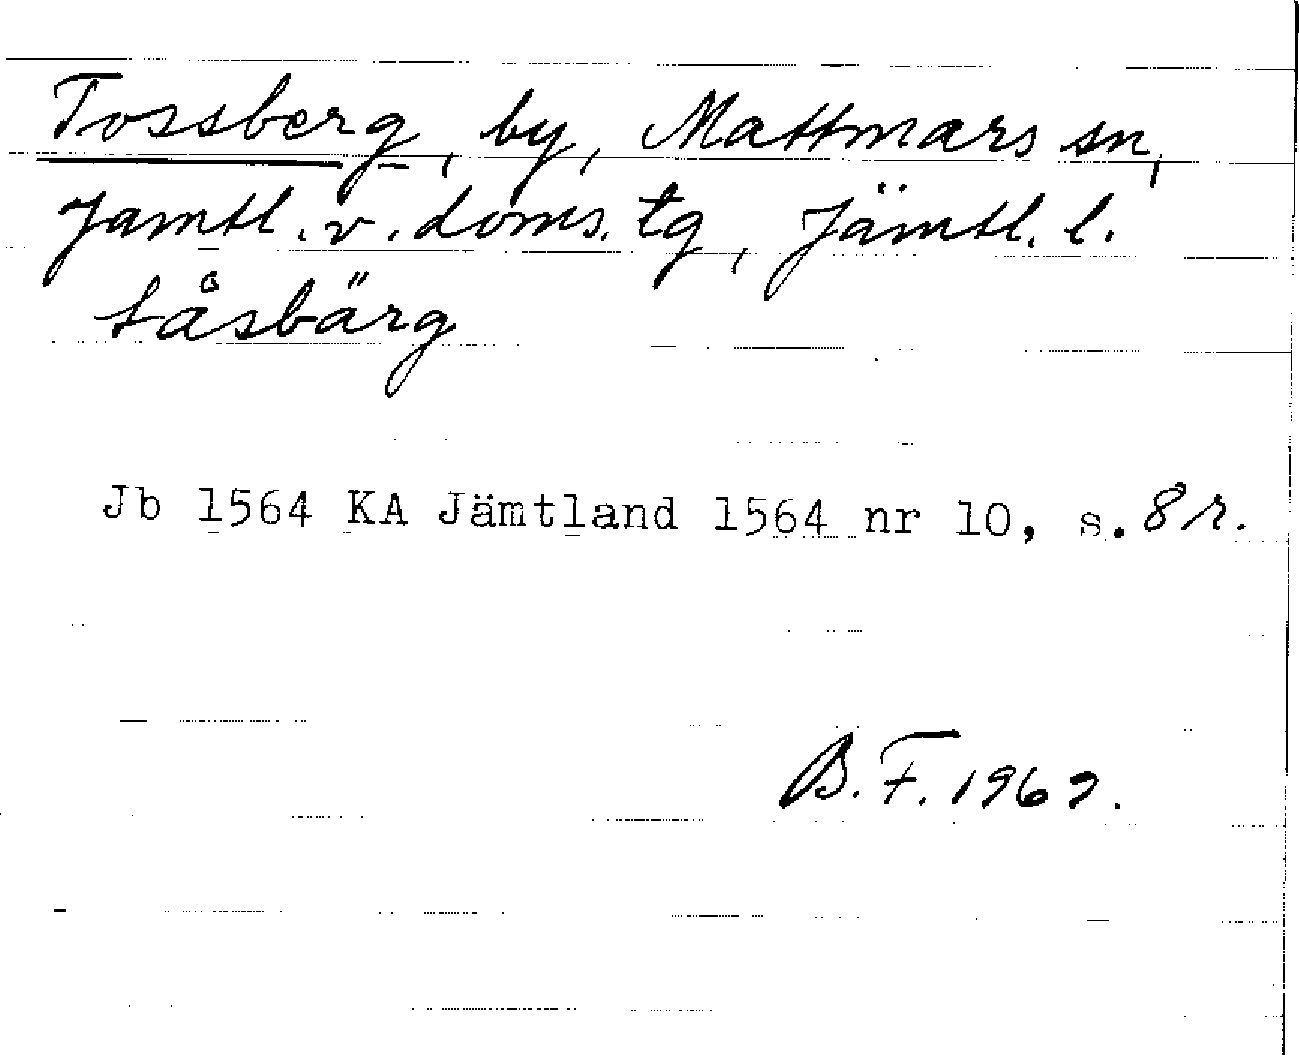 Tossberg, by, Mattmars sn,
Jämtl. v. doms. tg, Jämtl. l.
tåsbärg
Jb 1564 KA Jämtland 1564 nr 10, s. 8 r.
B. F. 1969.